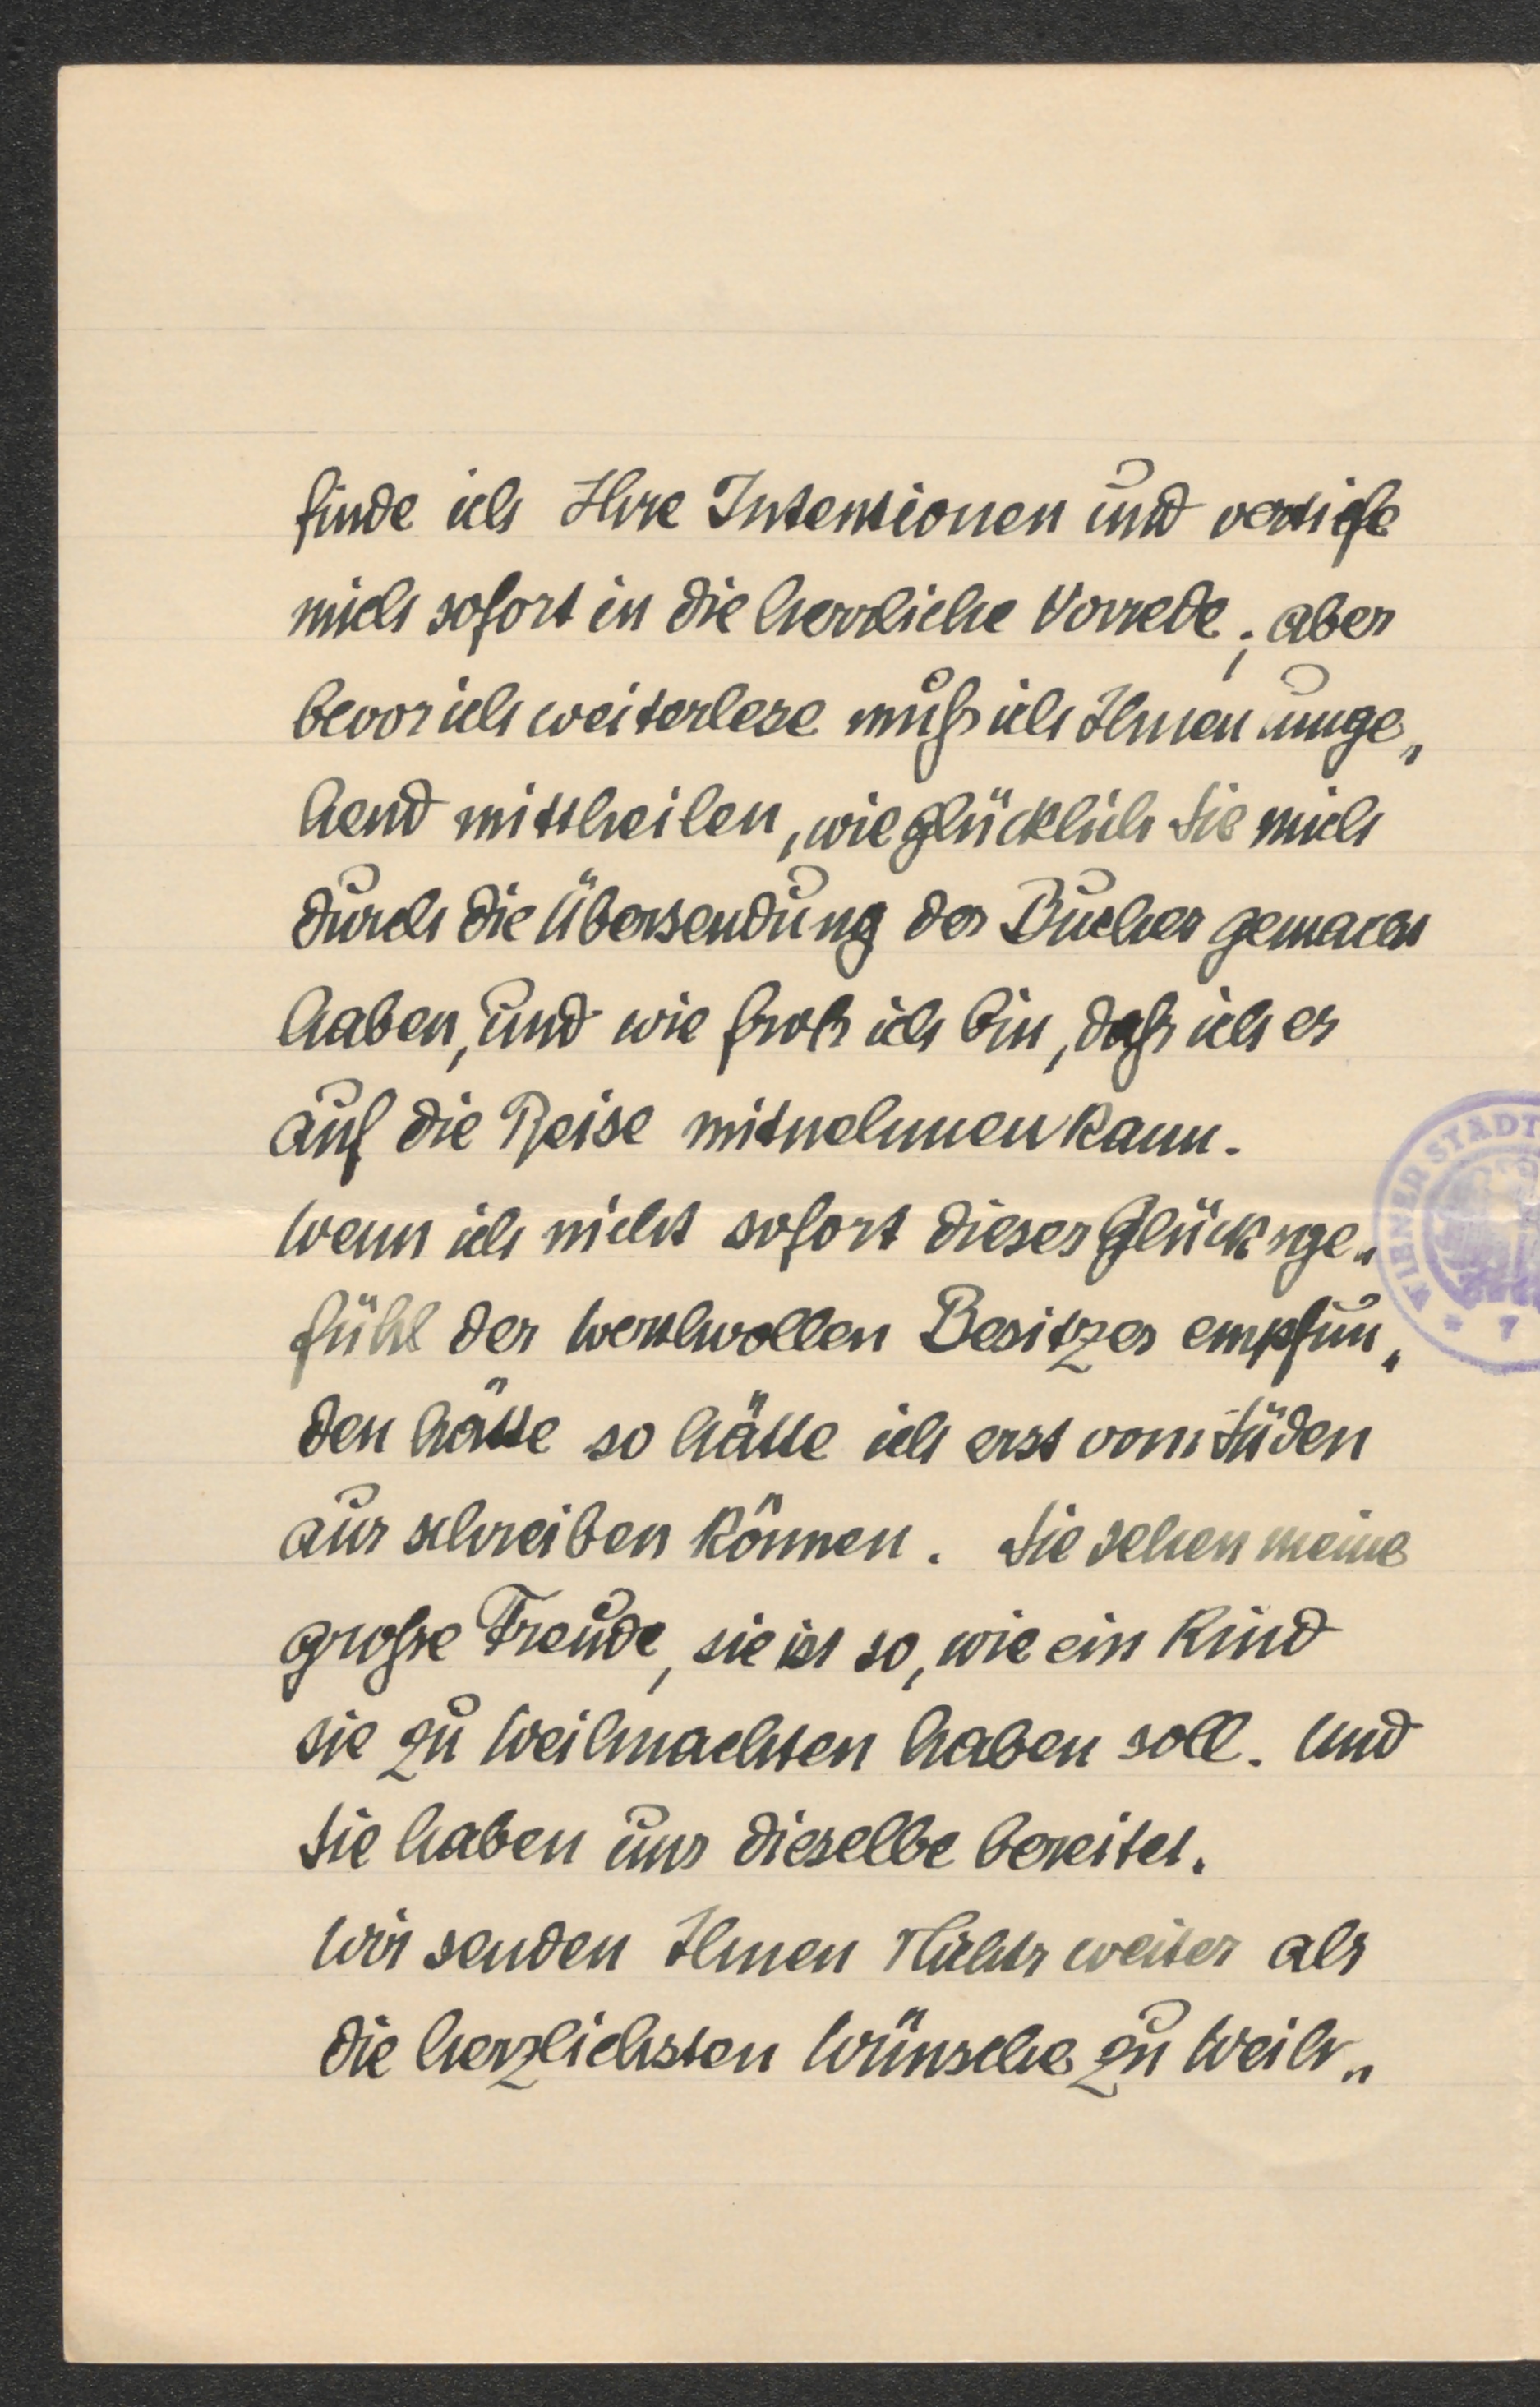 finde ich Ihre Intentionen und vertiefe
mich sofort in die herrliche Vorrede; aber
bevor ich weiterlese muß ich Ihnen umge„
hend mittheilen, wie glücklich Sie mich
durch die Übersendung des Buches gemacht
haben, und wie froh ich bin, daß ich es
auf die Reise mitnehmen kann.
Wenn ich nicht sofort dieses Glücksge„
fühl des werthvollen Besitzes empfun„
den hätte so hätte ich erst vom Süden
aus schreiben können. Sie sehen meine
große Freude, sie ist so, wie ein Kind
sie zu Weihnachten haben soll. Und
Sie haben uns dieselbe bereitet.
Wir senden Ihnen Nichts weiter als
die herzlichsten Wünsche zu Weih„
WIENER STADT
* 7